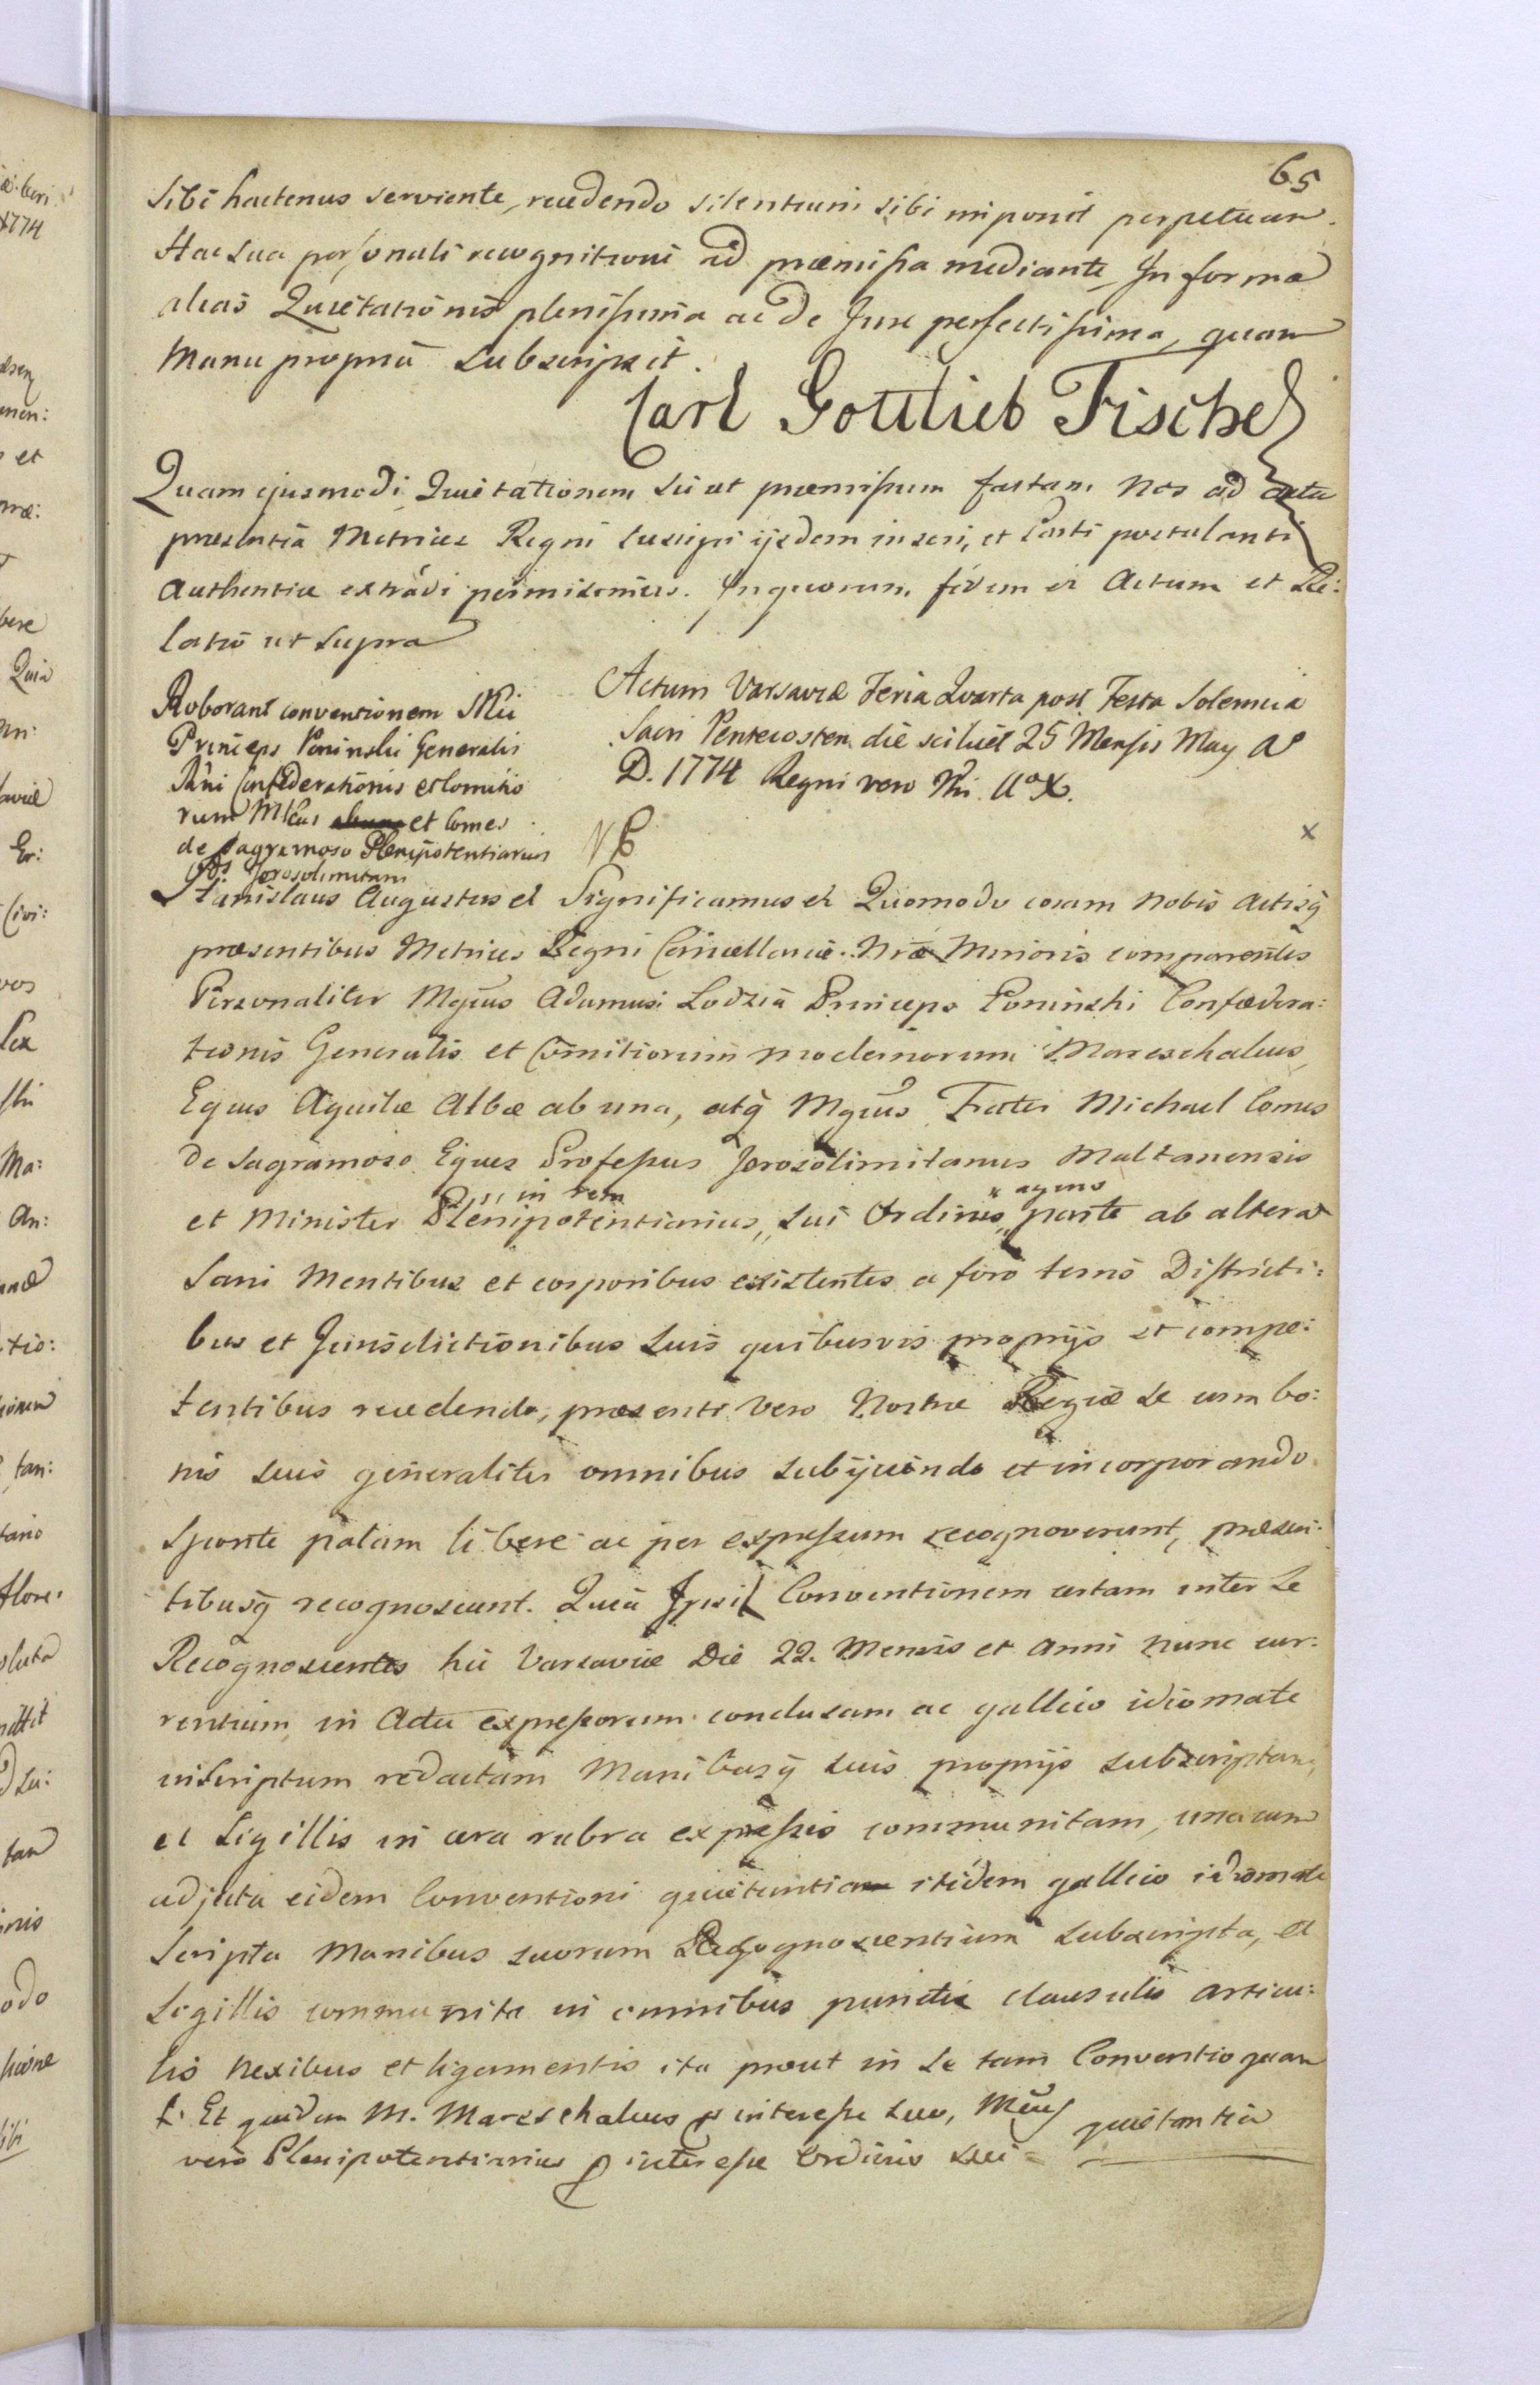 65
Sibi hactenus serviente, recedendo silentium sibi imponit perpetuum.
Hac sua personali recognitione ad præmissa mediante, In forma
alias Quietationis plenissima ac de Jure perfectissima, quam
Manu propria subscripsit.
Carl Gottlieb Fischer
Quam ejusmodi Quietationem sicut præmissum factam Nos ad acta
præsentia Metrices Regni suscipi ijsdem inseri, et Parti postulanti
Authentice extradi permisimus. In quorum fidem et Actum et Re:
latio ut supra
Roborant conventionem Mci
Princeps Poninski Generalis
Rni Confœderationis et Comitio
rum Mlcus et Comes
de Sagramoso Plenipotentiarius
Ords Jerosolimitani
Actum Varsaviæ Feria Quarta post Festa Solemnia
Sacri Pentecostem die scilicet 25 Mensis May Ao
D. 1774 Regni vero Nri Ao X.
NB
x
Stanislaus Augustus et Significamus et Quomodo coram Nobis Actisq
præsentibus Metrices Regni Cancellariæ Nræ Minoris comparentes
Personaliter Mgcus Adamus Lodzia Princeps Poninski Confœdera:
tionis Generalis et Comitiorum modernorum Mareschalcus,
Eques Aquilæ Albæ ab una, atq Mgcus Frater Michael Comes
de Sagramoso Eques Professus Jerosolimitanus Maltanensis
et Minister Plenipotentiarius,, in rem sui Ordinis,, agens parte ab altera
Sani Mentibus et corporibus existentes a foro terris Districti:
bus et Jurisdictionibus suis quibusvis proprijs et compe:
tentibus recedendo, præsenti vero Nostræ Regiæ se cum bo:
nis suis generaliter omnibus subijciendo et incorporando
Sponte palam libere ac per expressum recognoverunt, præsen:
tibusq recognoscunt. Quia Ipsi Ł Conventionem certam inter se
Recognoscentes hic Varsaviæ Die 22. Mensis et Anni nunc cur:
rentium in Actu expressorum conclusam ac gallico idiomate
inscriptum redactam Manibusq suis proprijs subscriptam,
et Sigillis in cera rubra expressis communitam, una cum
adjecta eidem Conventioni quietantia itidem gallico idiomate
Scripta Manibus suorum Recognoscentium subscripta, et
Sigillis communita in omnibus punctis clausulis articu:
lis Nexibus et ligamentis ita prout in se tam Conventio quam
quietantia
Ł Et quidem M. Mareschalcus p interesse suo, Mcus
vero Plenipotentiarius p interesse Ordinis sui =